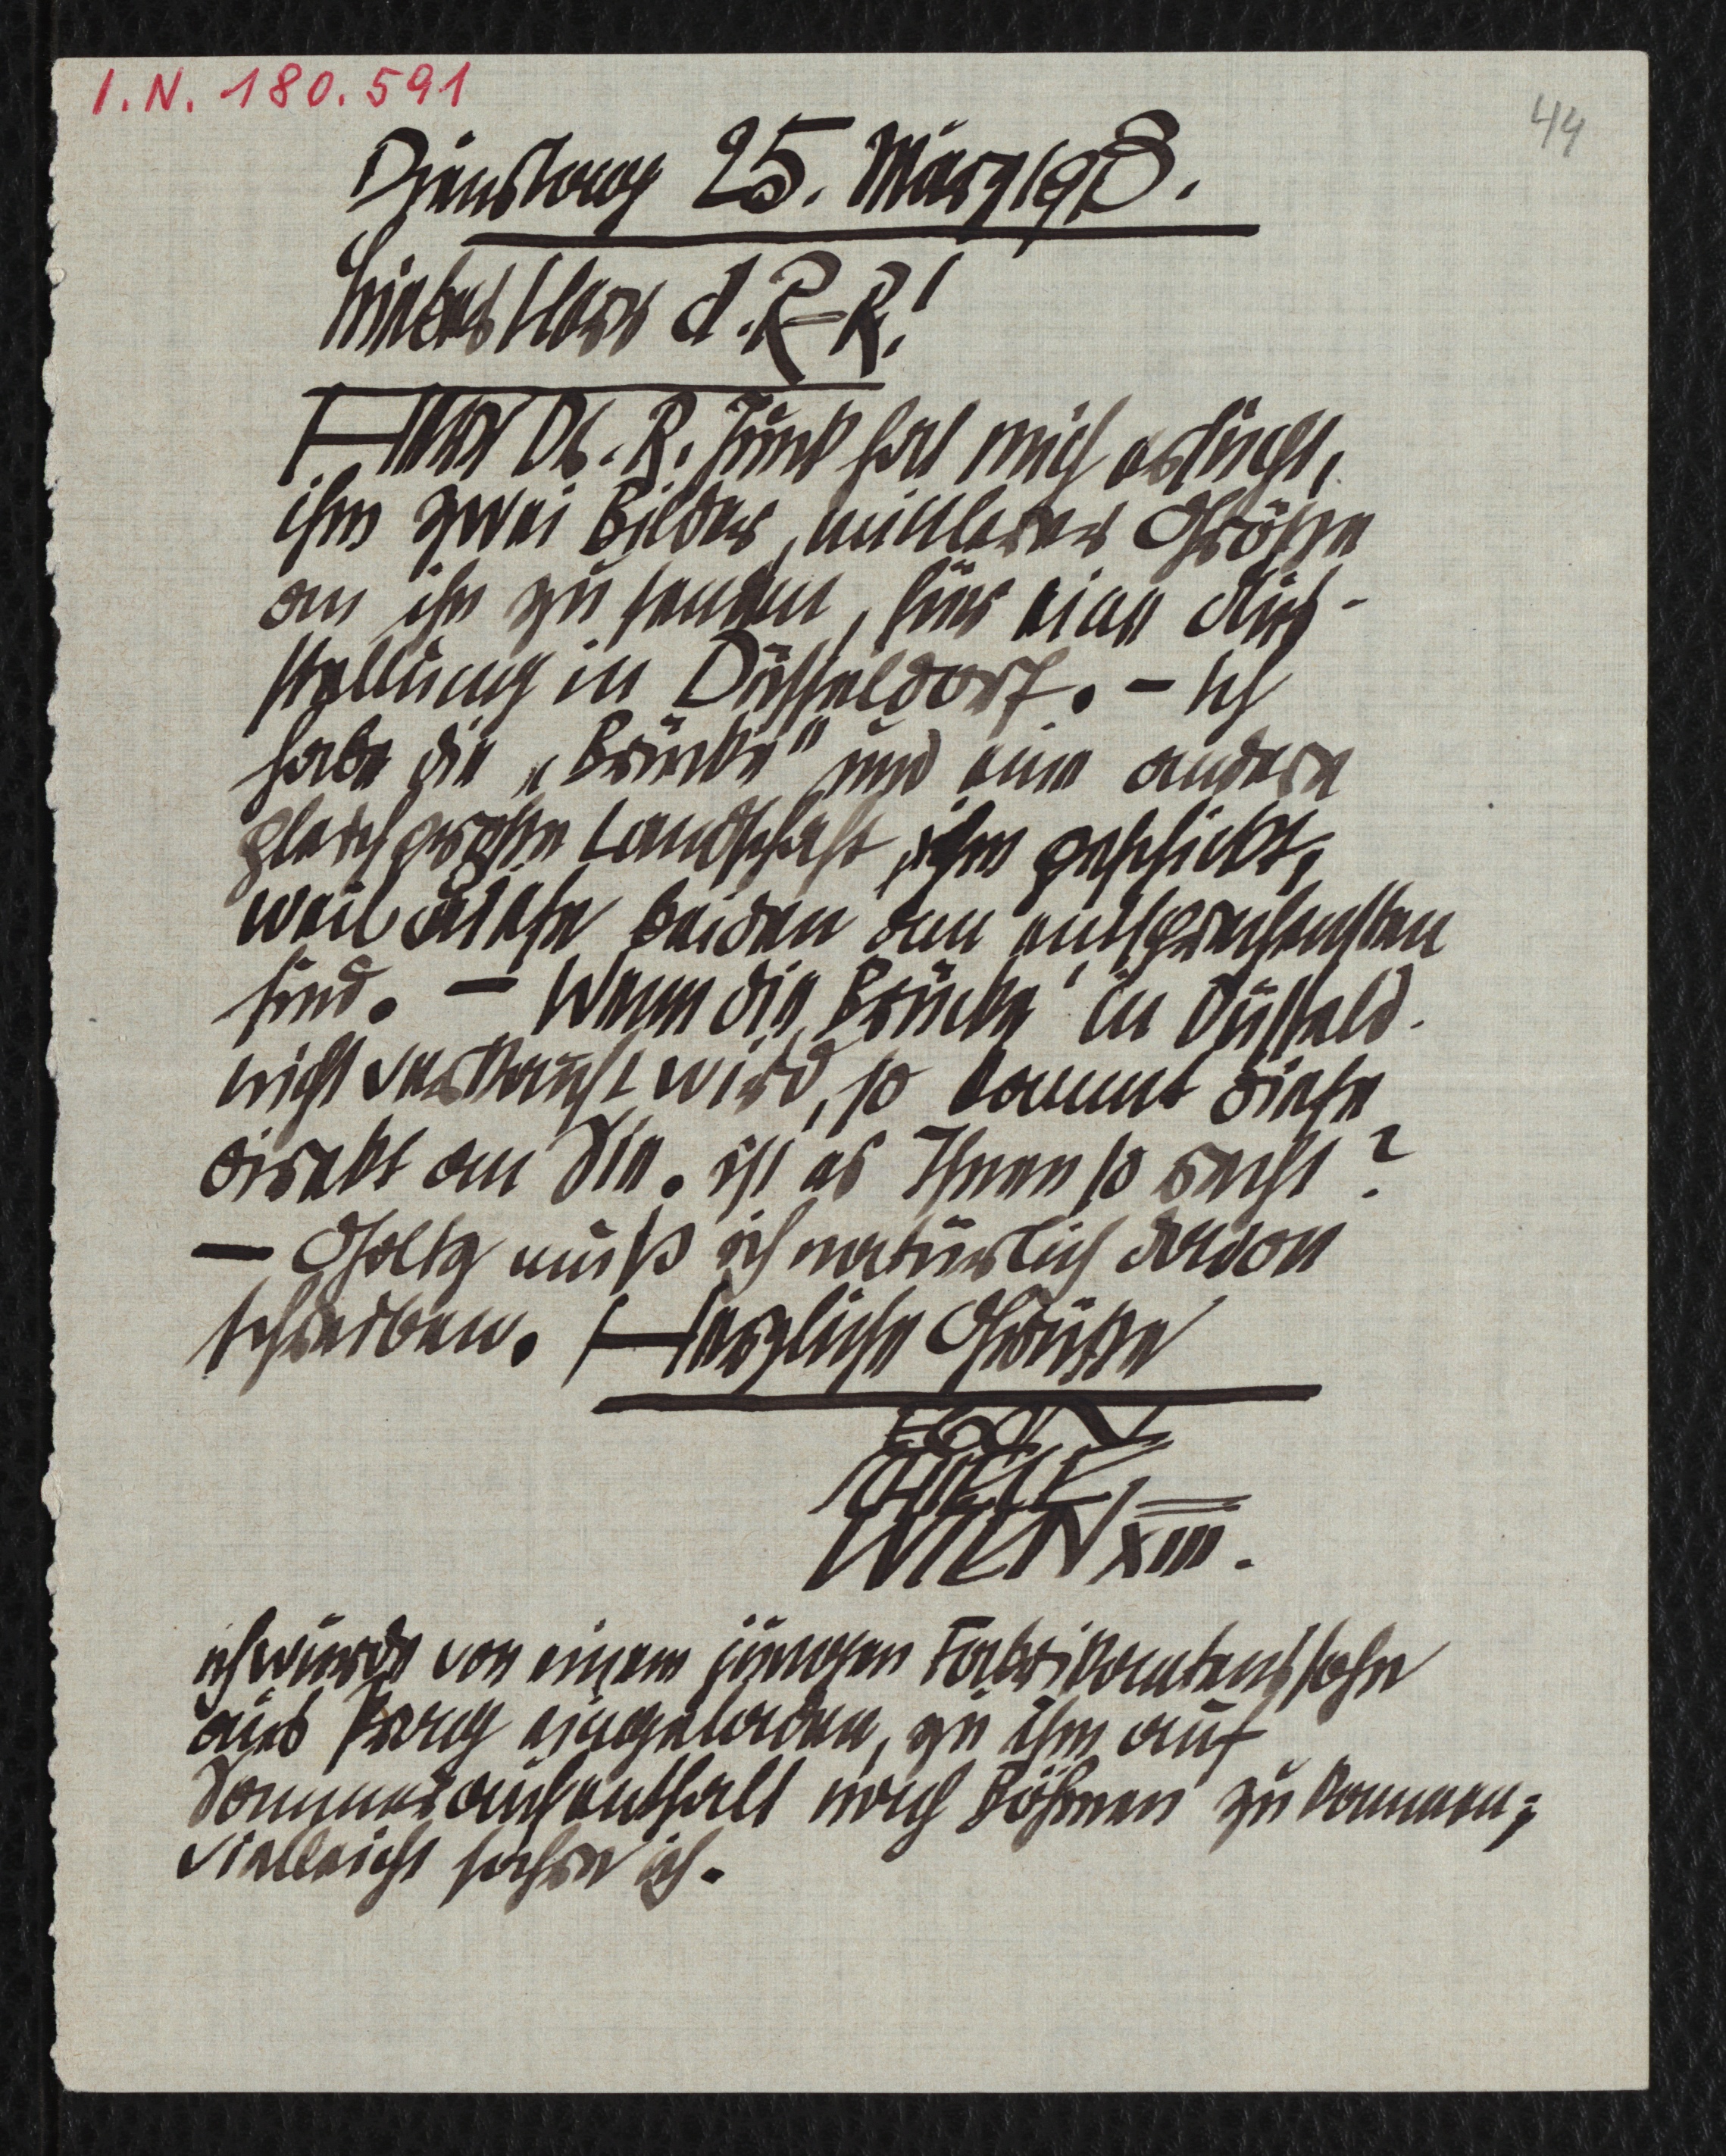 I.N. 180.591
44
Dienstag 25. März 1913.
Lieber Herr d. R-R!
Herr Dr. R. Junk hat mich ersucht,
ihm zwei Bilder, mittlerer Größe
an ihn zu senden, für eine Aus-
stellung in Düsseldorf. – Ich
habe die „Brücke" und eine andere
gleichgroße Landschaft ihm geschickt,
weil diese beiden am entsprechensten
sind. – Wenn die Brücke in Düsseld.
nicht verkauft wird, so kommt diese
direkt an Sie. ist es Ihnen so recht?
– Goltz muß ich natürlich davon
schreiben. Herzliche Grüße
EGON
SCHIELE
WIEN XIII.
ich wurde von einem jungen Fabrikantenssohn
aus Prag eingeladen, zu ihm auf
Sommeraufenthalt nach Böhmen zu kommen;
vielleicht fahre ich.